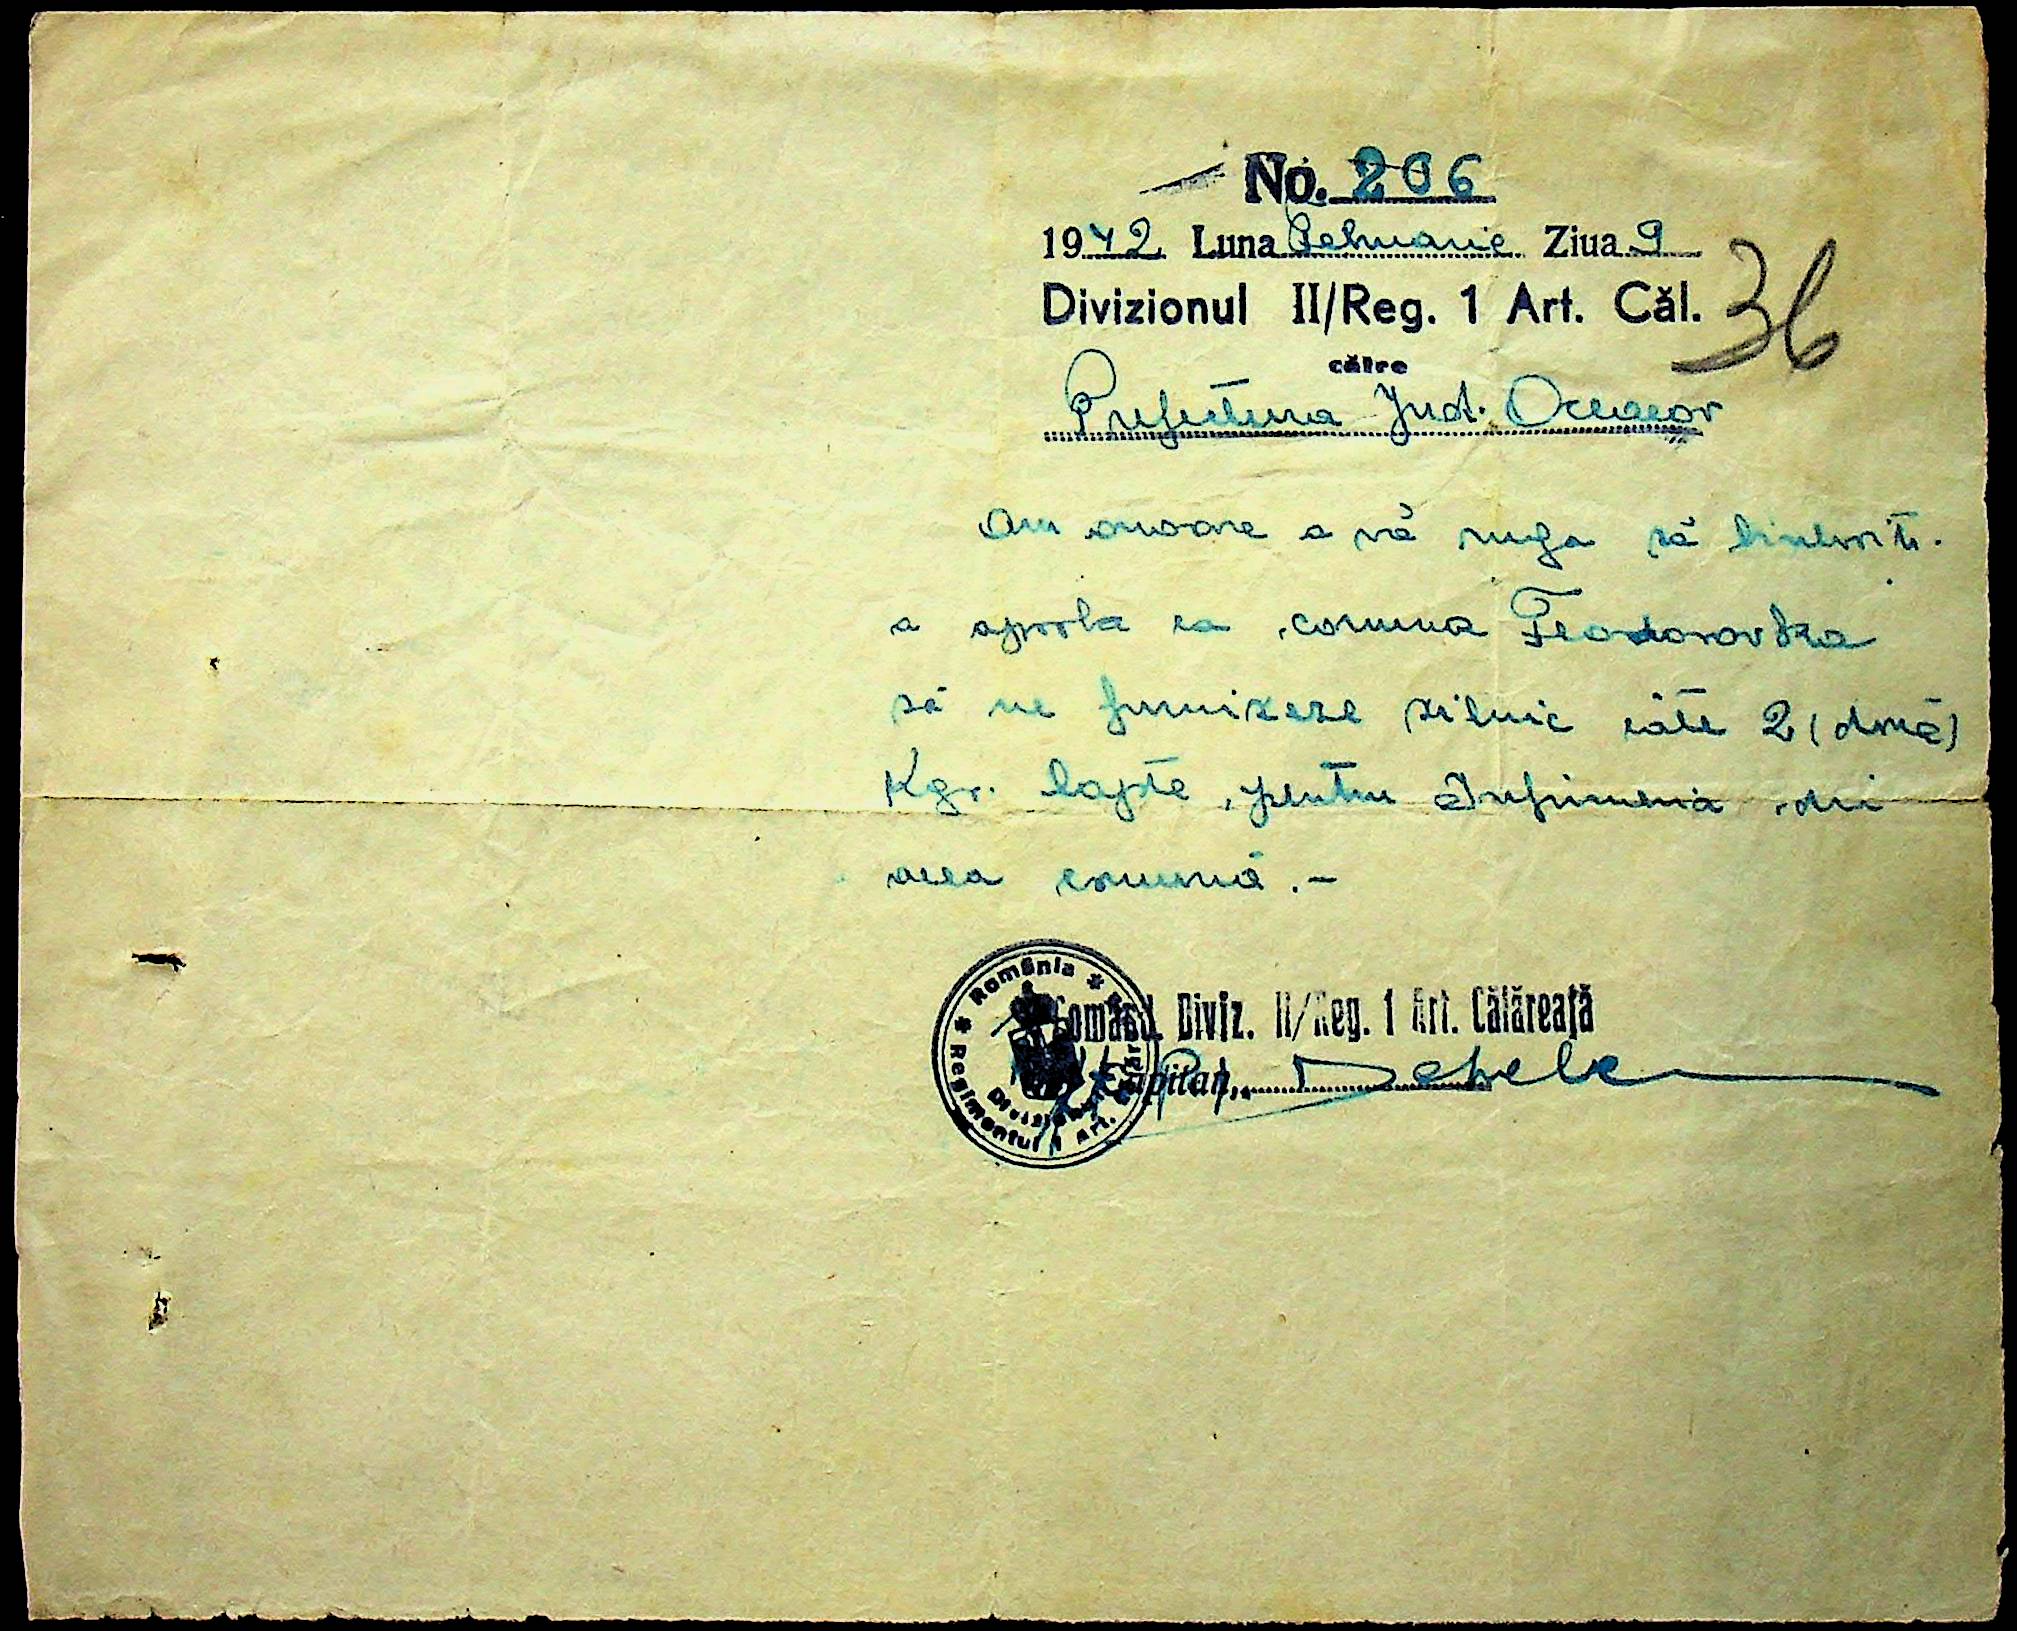 No. 206
1942 Luna Februarie Ziua 9
Divizionul II/Reg. 1 Art. Căl.
36
către
Prefectura Jud. Oceacov
Am onoare a vă ruga să binevoiți
a aproba ca comuna Feodorovka
să ne furnizeze zilnic câte 2 (două)
Kgr. lapte, pentru Infirmeria din
acea comună.-
România
Comand. Diviz. II/Reg. 1 Art. Călăreață
Capitan,
Regimentul 1 Art.